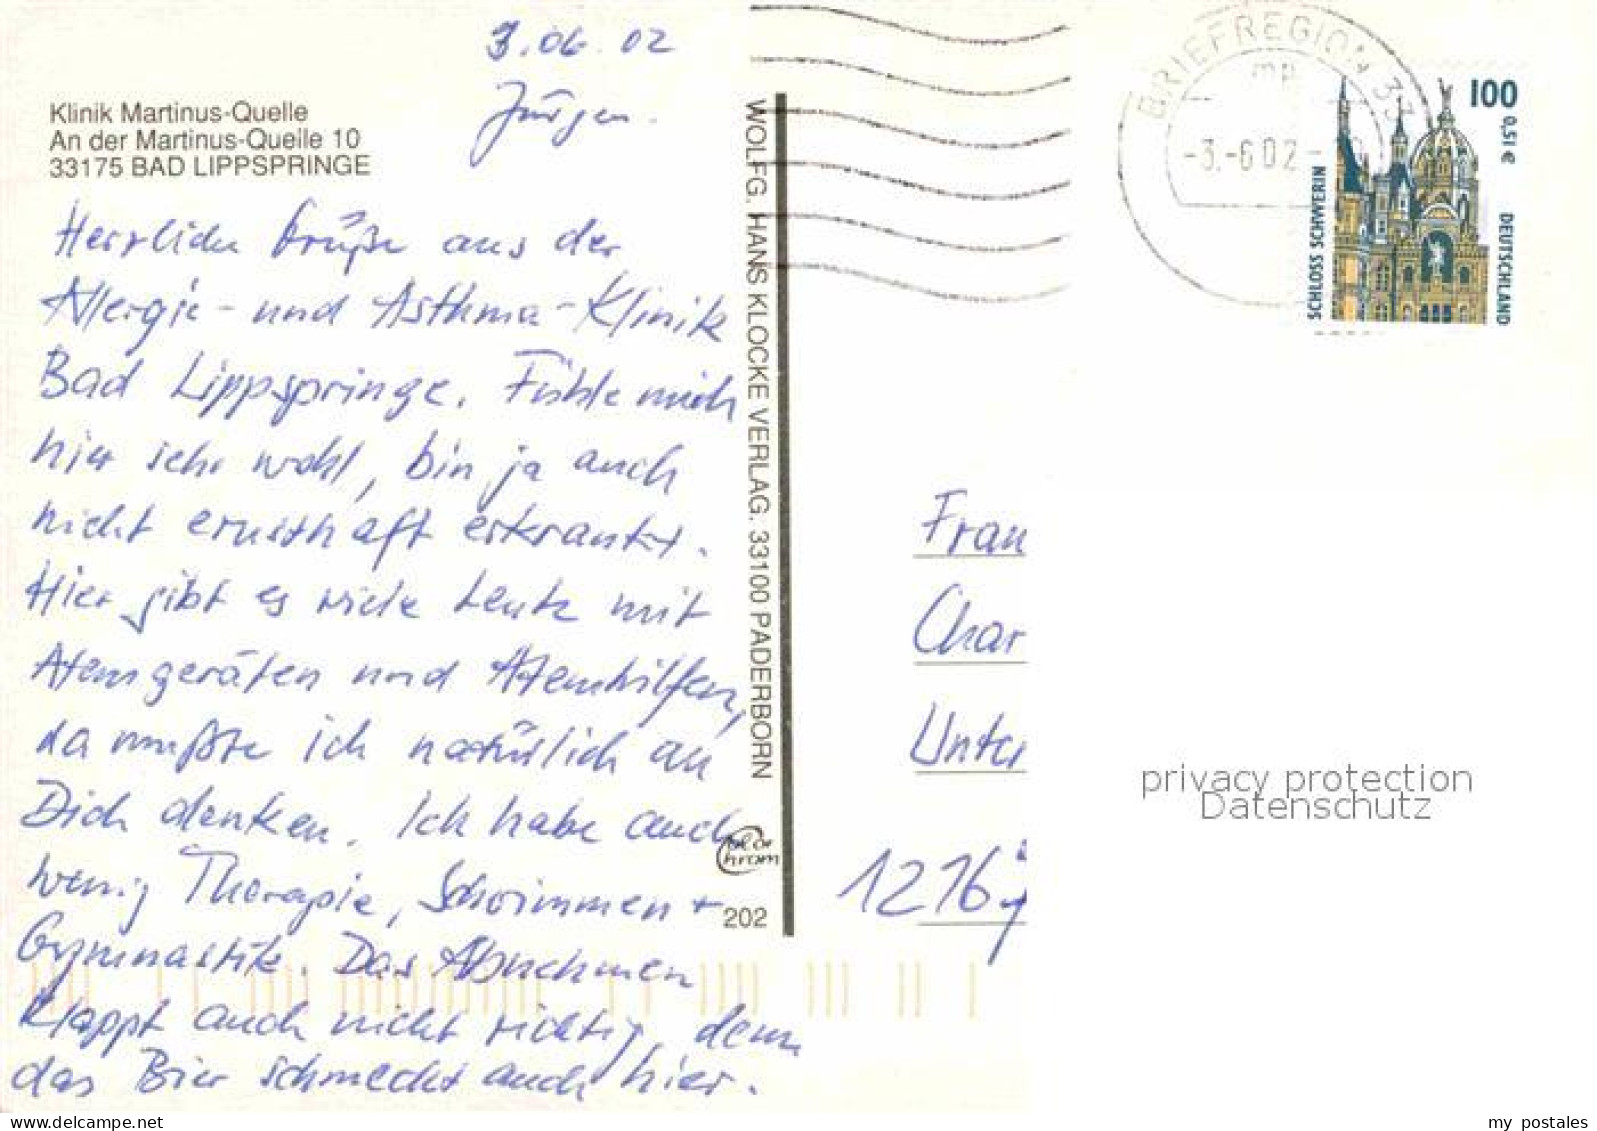 3.06.02
Jürgen.
Klinik Martinus-Quelle
An der Martinus-Quelle 10
33175 BAD LIPPSPRINGE
Herrliche Grüße aus der
Allergie- und Asthma-Klinik
Bad Lippspringe. Fühle mich
hier sehr wohl, bin ja auch
nicht ernsthaft erkrankt.
Hier gibt es viele Leute mit
Atemgeräten und Atemhilfen,
da mußte ich natürlich an
Dich denken. Ich habe auch
wenig Therapie, Schwimmen +
Gymnastik. Das Abnehmen
klappt auch nicht richtig, denn
das Bier schmeckt auch hier.
WOLFG. HANS KLOCKE VERLAG. 33100 PADERBORN
color
chrom
202
BRIEFREGION 33
mp
-3.-602-
100
0,51 €
SCHLOSS SCHWERIN
DEUTSCHLAND
Frau
Char
Unter
1216
privacy protection
Datenschutz
www.delcampe.net
my_postales